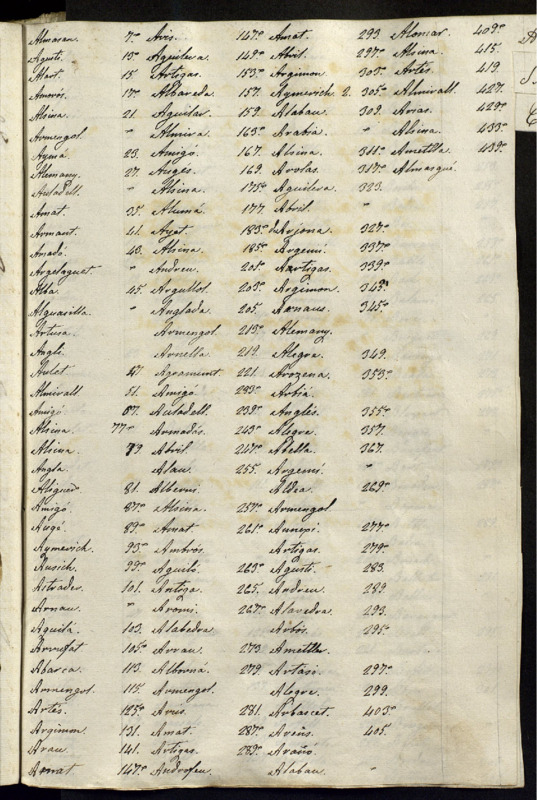 Almaran. 7º Avis. 147º Amat 293 Alomar. 409º
Agusti. 13º Aguilera. 149º Abril. 297º Alsina. 415.
Abart. 15 Artigas. 153º Argimon. 303º Artés. 419.
Amorós. 17º Albareda. 157. Aymerich. 2. 305º Almirall. 427.
Alsina. 21. Aguilar. 159. Alabau. 309. Arias. 429º
Armengol. " Almira. 163º Arabia. " Alsina. 433º
Aymá. 23. Amigó. 167. Alsina. 311º Ametlla. 439º
Alemany. 27. Auges. 169. Arolas. 317º Almasqué.
Auladell. " Alsina. 173º Aguilera. 323.
Amat. 35. Alumá. 177. Abril. "
Armant. 41. Ayat. 183º de Arjona. 327º
Amadó. 43. Alsina. 185º Argemí. 337º
Argelaguet. " Andreu. 201º Artigas. 339º
Alba. 45. Argullol. 203º Argimon. 343º
Alguacilla. " Anglada. 205. Arnaus. 345º
Artusa. Armengol. 213º Alemany.
Anglí. Arnella. 219. Alegra. 349.
Aulet. 47 Agramunt. 221. Arozena. 353º
Almirall. 51. Amigó. 233º Arbiá.
Amigó. 67. Auladell. 239º Anglés. 355º
Alsina. 77º Armadás. 243º Alegre. 357.
Alsina. 79. Abril. 247º Abella. 367.
Angla. Alau. 255. Argemí. "
Aliguer. 81. Alberni. Aldea. 269º
Amigó. 87º Alsina. 257º Armengol.
Augé. 89º Amat 261º Annexi. 277º
Aymerich. 93º Ambrós. Artigas. 279º
Ausich. 99º Aguiló. 263º Agusti. 283.
Astrader. 101. Antiga. 265. Andreu. 289.
Arnau. " Aromi. 267º Alavedra. 293.
Aguilá. 103. Alabedra. Arbós. 295º
Armefat 105º Arrau. 273. Ametlla.
Abarca. 113. Alborná. 279. Artasi. 297º
Armengol. 115. Armengol. Alegre. 299.
Artés. 125º Arús. 281. Arbascet. 403º
Argimon. 131. Amat. 287º Areñs. 405.
Arau. 141. Artigas. 289º Arañó.
Amat 147º Androfeu. Alabau. "